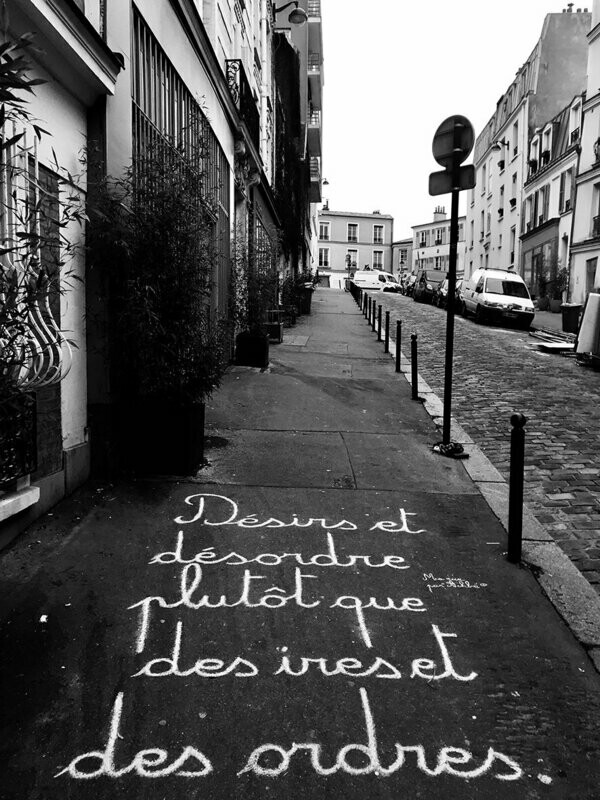 Désirs et
désordre
plutôt que
des ires et
des ordres.